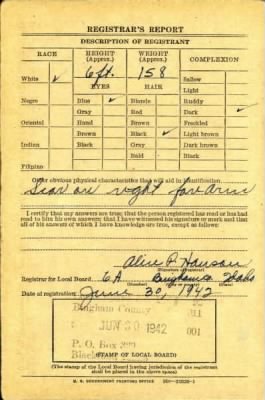 REGISTRAR'S REPORT
DESCRIPTION OF REGISTRANT
RACE HEIGHT (Approx.) WEIGHT (Approx.) COMPLEXION
White ✓ 6 ft. 158 Sallow
EYES HAIR Light
Negro Blue ✓ Blonde Ruddy
Gray Red Dark ✓
Oriental Hazel Brown Freckled
Brown Black ✓ Light brown
Indian Black Gray Dark brown
Bald Black
Filipino
Other obvious physical characteristics that will aid in identification
Scar on right forarm
I certify that my answers are true; that the person registered has read or has had
read to him his own answers; that I have witnessed his signature or mark and that
all of his answers of which I have knowledge are true, except as follows:
Alice P. Hanson
(Signature of registrar)
Registrar for Local Board 6A Bingham Co Idaho
Date of registration June 30, 1942
Bingham County
011
JUN 30 1942 001
P. O. Box
(STAMP OF LOCAL BOARD)
(The stamp of the Local Board having jurisdiction of the registrant
shall be placed in the above space)
U. S. GOVERNMENT PRINTING OFFICE